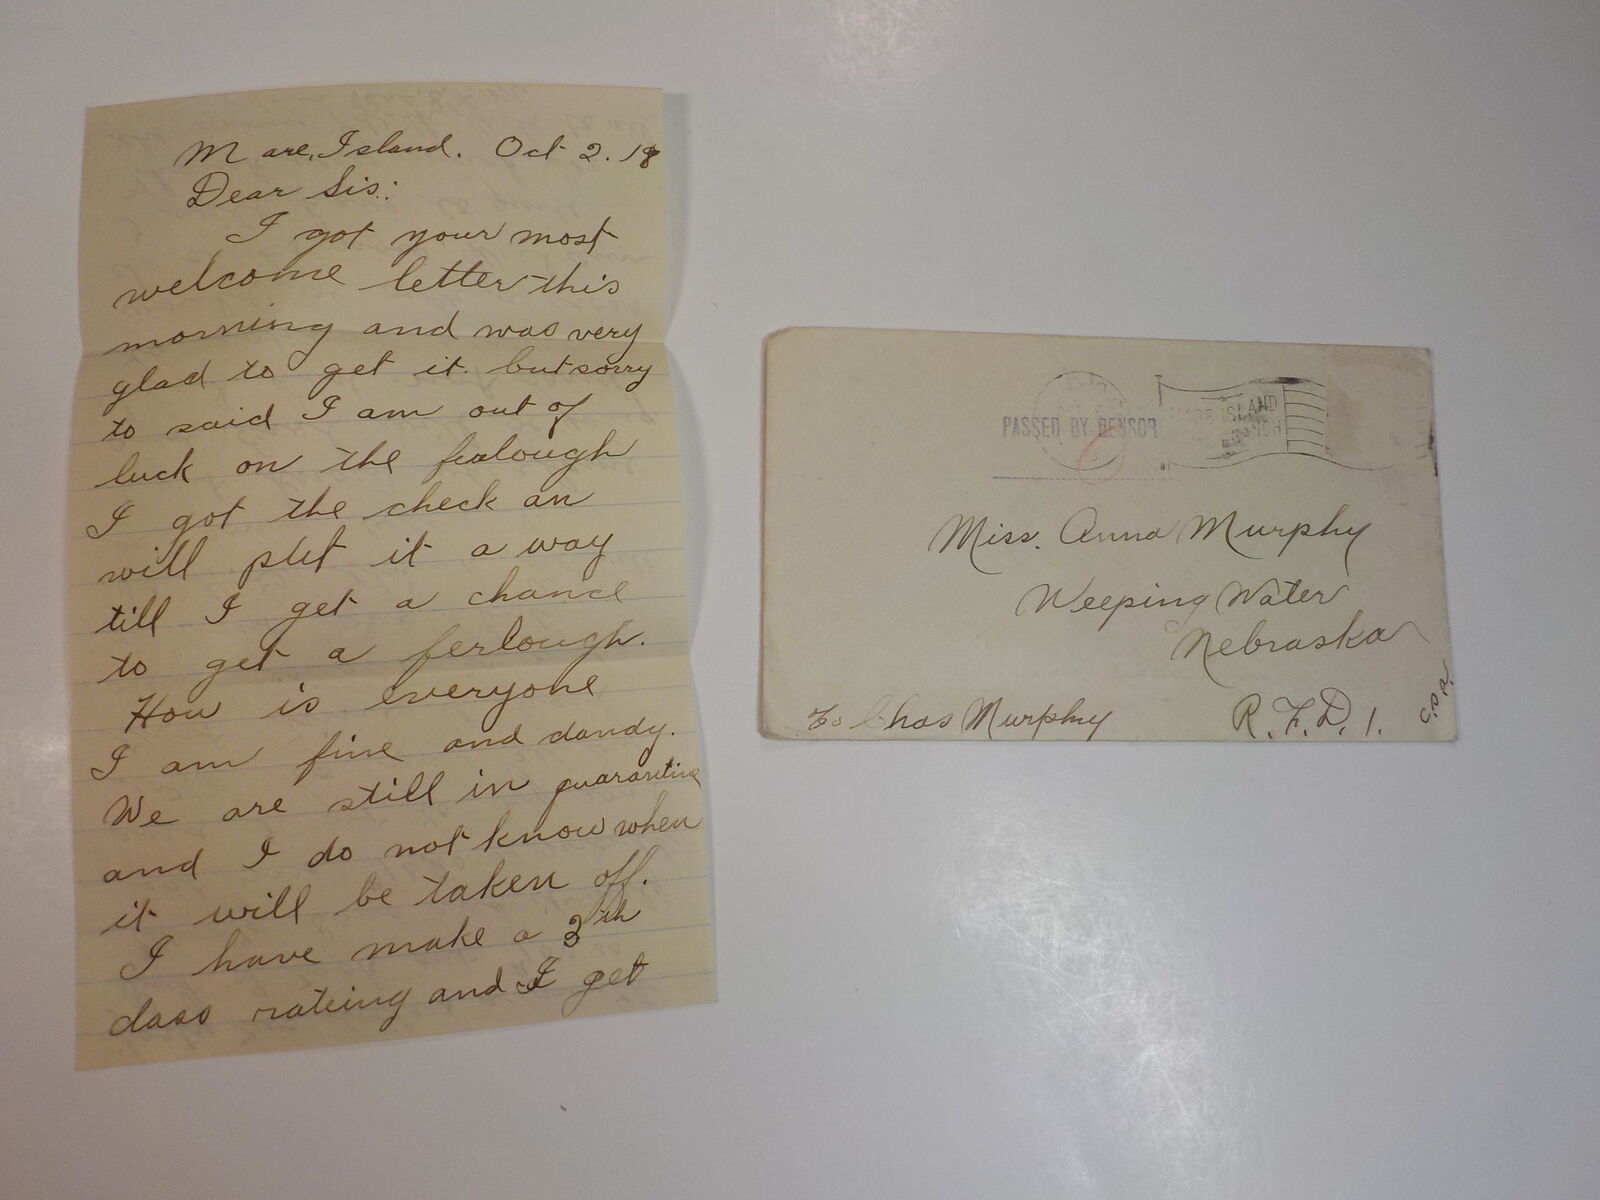 Mare, Island. Oct 2. 18
Dear Sis:
I got your most
welcome letter this
morning and was very
glad to get it. but sorry
to said I am out of
luck on the fealough
I got the check an
will put it a way
till I get a chance
to get a ferlough.
How is everyone
I am fine and dandy.
We are still in quarantine
and I do not know when
it will be taken off.
I have make a 3th
class rateing and I get
PASSED BY CENSOR
MARE ISLAND
BRANCH
Miss. Anna Murphy
Weeping Water
Nebraska
℅ Chas Murphy R. F. D. 1.